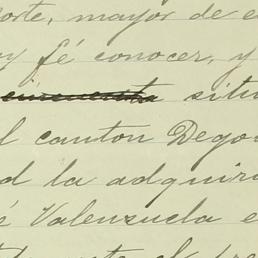 orte, mayor de e
y fé conocer, y
situ
l canton Dego
d la adquiri
é Valenzuela e